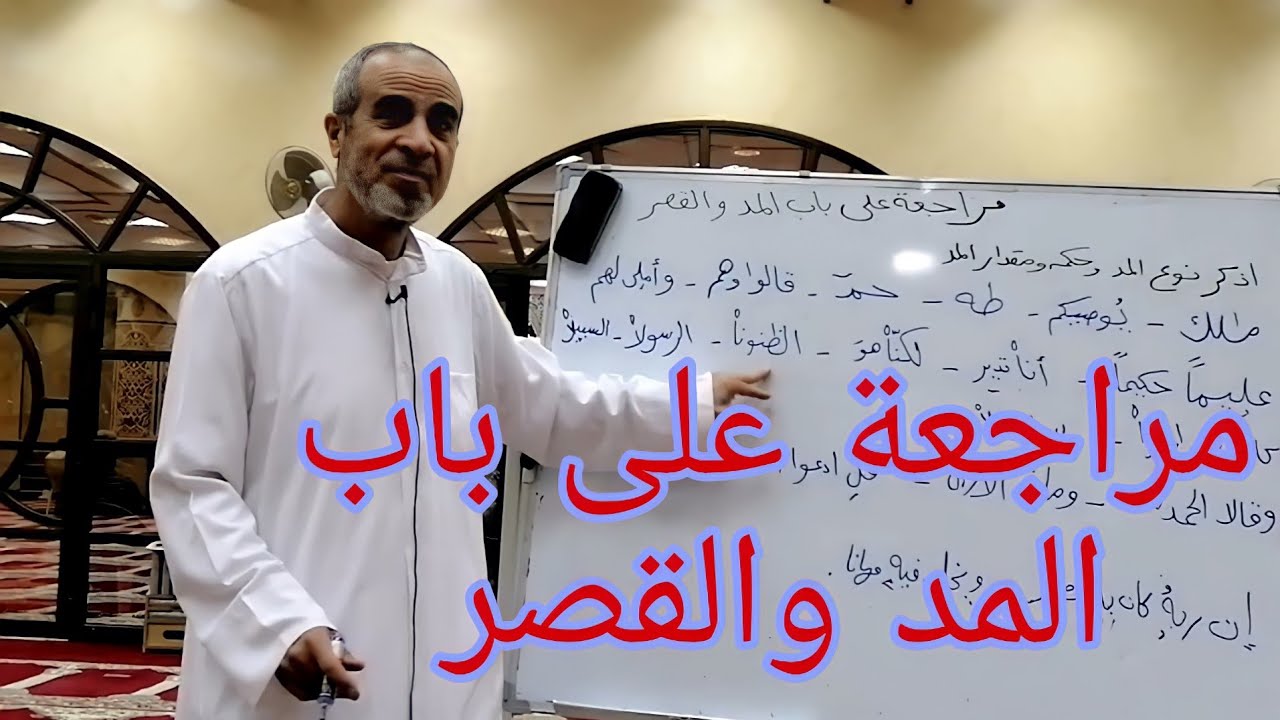 مراجعة على باب المد والقصر
اذكر نوع المد وحكمه ومقدار المد
ملك - يُوصيكم - طه - حمٓ - قالوا وهم - وأملى لهم
عليماً حكيماً - أناْ نذير - لكنّاْ هوَ - الظنوناْ - الرسولاْ - السبيلاْ
وقالا الحمد ادعوا
إن ربهُ كان فيهِ مهانا.
مراجعة على باب
المد والقصر